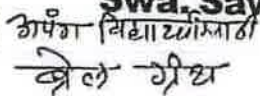 Swa. Sav
अपंग विद्यार्थ्यांसाठी
ब्रेल ग्रंथ